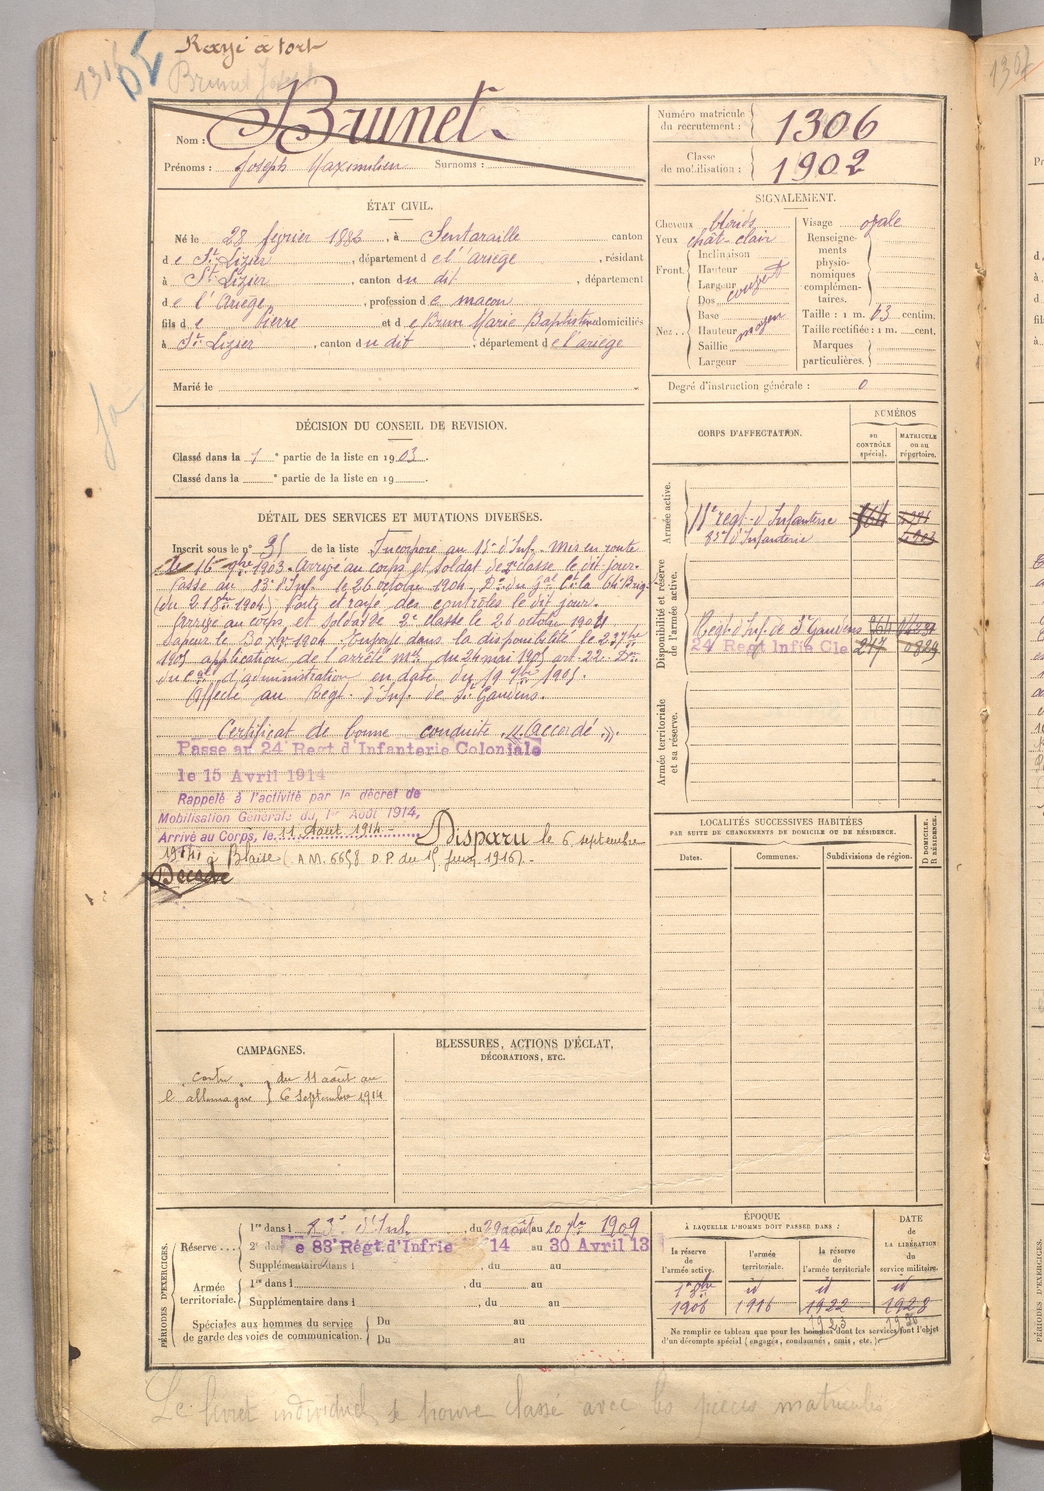 Rayé à tort
1306
Brunet Joseph
Nom : Brunet
Prénoms : Joseph Maximilien Surnoms :
Numéro matricule du recrutement : 1306
Classe de mobilisation : 1902
ÉTAT CIVIL.
Né le 28 février 1882, à Sentaraille canton
de St Lizier, département de l'ariège, résidant
à St Lizier, canton du dit, département
de l'Ariège, profession de maçon
fils de Pierre et de Brun Marie Baptistine domiciliés
à St Lizier, canton du dit, département de l'ariège
Marié le
SIGNALEMENT.
Cheveux blonds
Yeux chât-clair
Front. Inclinaison
Hauteur
Largeur
Dos
Nez. Base
Hauteur moyen
Saillie
Largeur
Visage ovale
Renseignements physionomiques complémentaires.
Taille : 1 m. 63 centim.
Taille rectifiée : 1 m. cent.
Marques particulières.
Degré d'instruction générale : 0
DÉCISION DU CONSEIL DE REVISION.
Classé dans la 1e partie de la liste en 1903.
Classé dans la e partie de la liste en 19
DÉTAIL DES SERVICES ET MUTATIONS DIVERSES.
Inscrit sous le n° 35 de la liste Incorporé au 15e d'Inf. Mis en route
le 16 9bre 1903. Arrivé au corps et soldat de 2e classe le dit jour.
Passé au 83e d'Inf. le 26 octobre 1904. Don du Gal Ct la Brig.
(du 21 8bre 1904) parti et rayé des contrôles le dit jour.
Arrivé au corps, et soldat de 2e classe le 26 octobre 1904
Sapeur le 30 Xbre 1904. Envoyé dans la disponibilité le 23 7bre
1905 application de l'arrêté mel du 24 mai 1905 art. 22. Don
du cel d'administration en date du 19 7bre 1905.
Affecté au Regt d'Inf. de St Gaudens.
Certificat de bonne conduite "Accordé".
Passé au 24e Regt d'Infanterie Coloniale
le 15 Avril 1914
Rappelé à l'activité par le décret de
Mobilisation Générale du 1er Août 1914,
Arrivé au Corps, le 11 Août 1914 - Disparu le 6 septembre
1914 à Blaise (A.M. 6658 D.P. du 15 1916).
Décédé
CORPS D'AFFECTATION.
NUMÉROS
au CONTRÔLE spécial.
MATRICULE ou au répertoire.
Armée active.
15e regt d'Infanterie
83e d'Infanterie
Disponibilité et réserve de l'armée active.
Regt d'Inf. de St Gaudens
24 Regt Infie Cle
Armée territoriale et sa réserve.
LOCALITÉS SUCCESSIVES HABITÉES
PAR SUITE DE CHANGEMENTS DE DOMICILE OU DE RÉSIDENCE.
Dates.
Communes.
Subdivisions de région.
D DOMICILE. R RÉSIDENCE.
CAMPAGNES.
contre l'allemagne } du 11 août au
6 Septembre 1914
BLESSURES, ACTIONS D'ÉCLAT,
DÉCORATIONS, ETC.
PÉRIODES D'EXERCICES.
Réserve 1re dans l 83e d'Inf., du 29 août au 20 7bre 1909
2e dans le 83e Régt. d'Infrie 14 au 30 Avril 13
Supplémentaire dans l, du au
Armée territoriale. 1re dans l, du au
Supplémentaire dans l, du au
Spéciales aux hommes du service de garde des voies de communication. Du au
Du au
ÉPOQUE
À LAQUELLE L'HOMME DOIT PASSER DANS :
la réserve de l'armée active.
l'armée territoriale.
la réserve de l'armée territoriale
DATE de LA LIBÉRATION du service militaire.
1er 8bre 1906
id 1916
id 1922
id 1928
Ne remplir ce tableau que pour les hommes dont les services font l'objet
d'un décompte spécial (engagés, condamnés, omis, etc.)
Le livret individuel se trouve classé avec les pièces matricules
PÉRIODES D'EXERCICES.